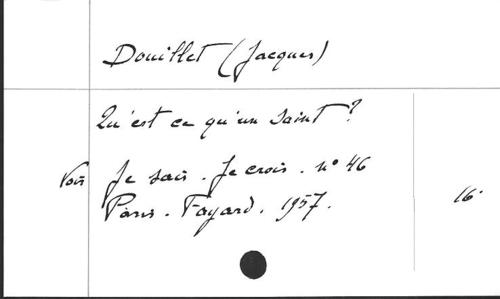 Douillet (Jacques)
Qu'est ce qu'un saint ?
Voir Je sais. Je crois. n° 46
Paris. Fayard. 1957. 16.